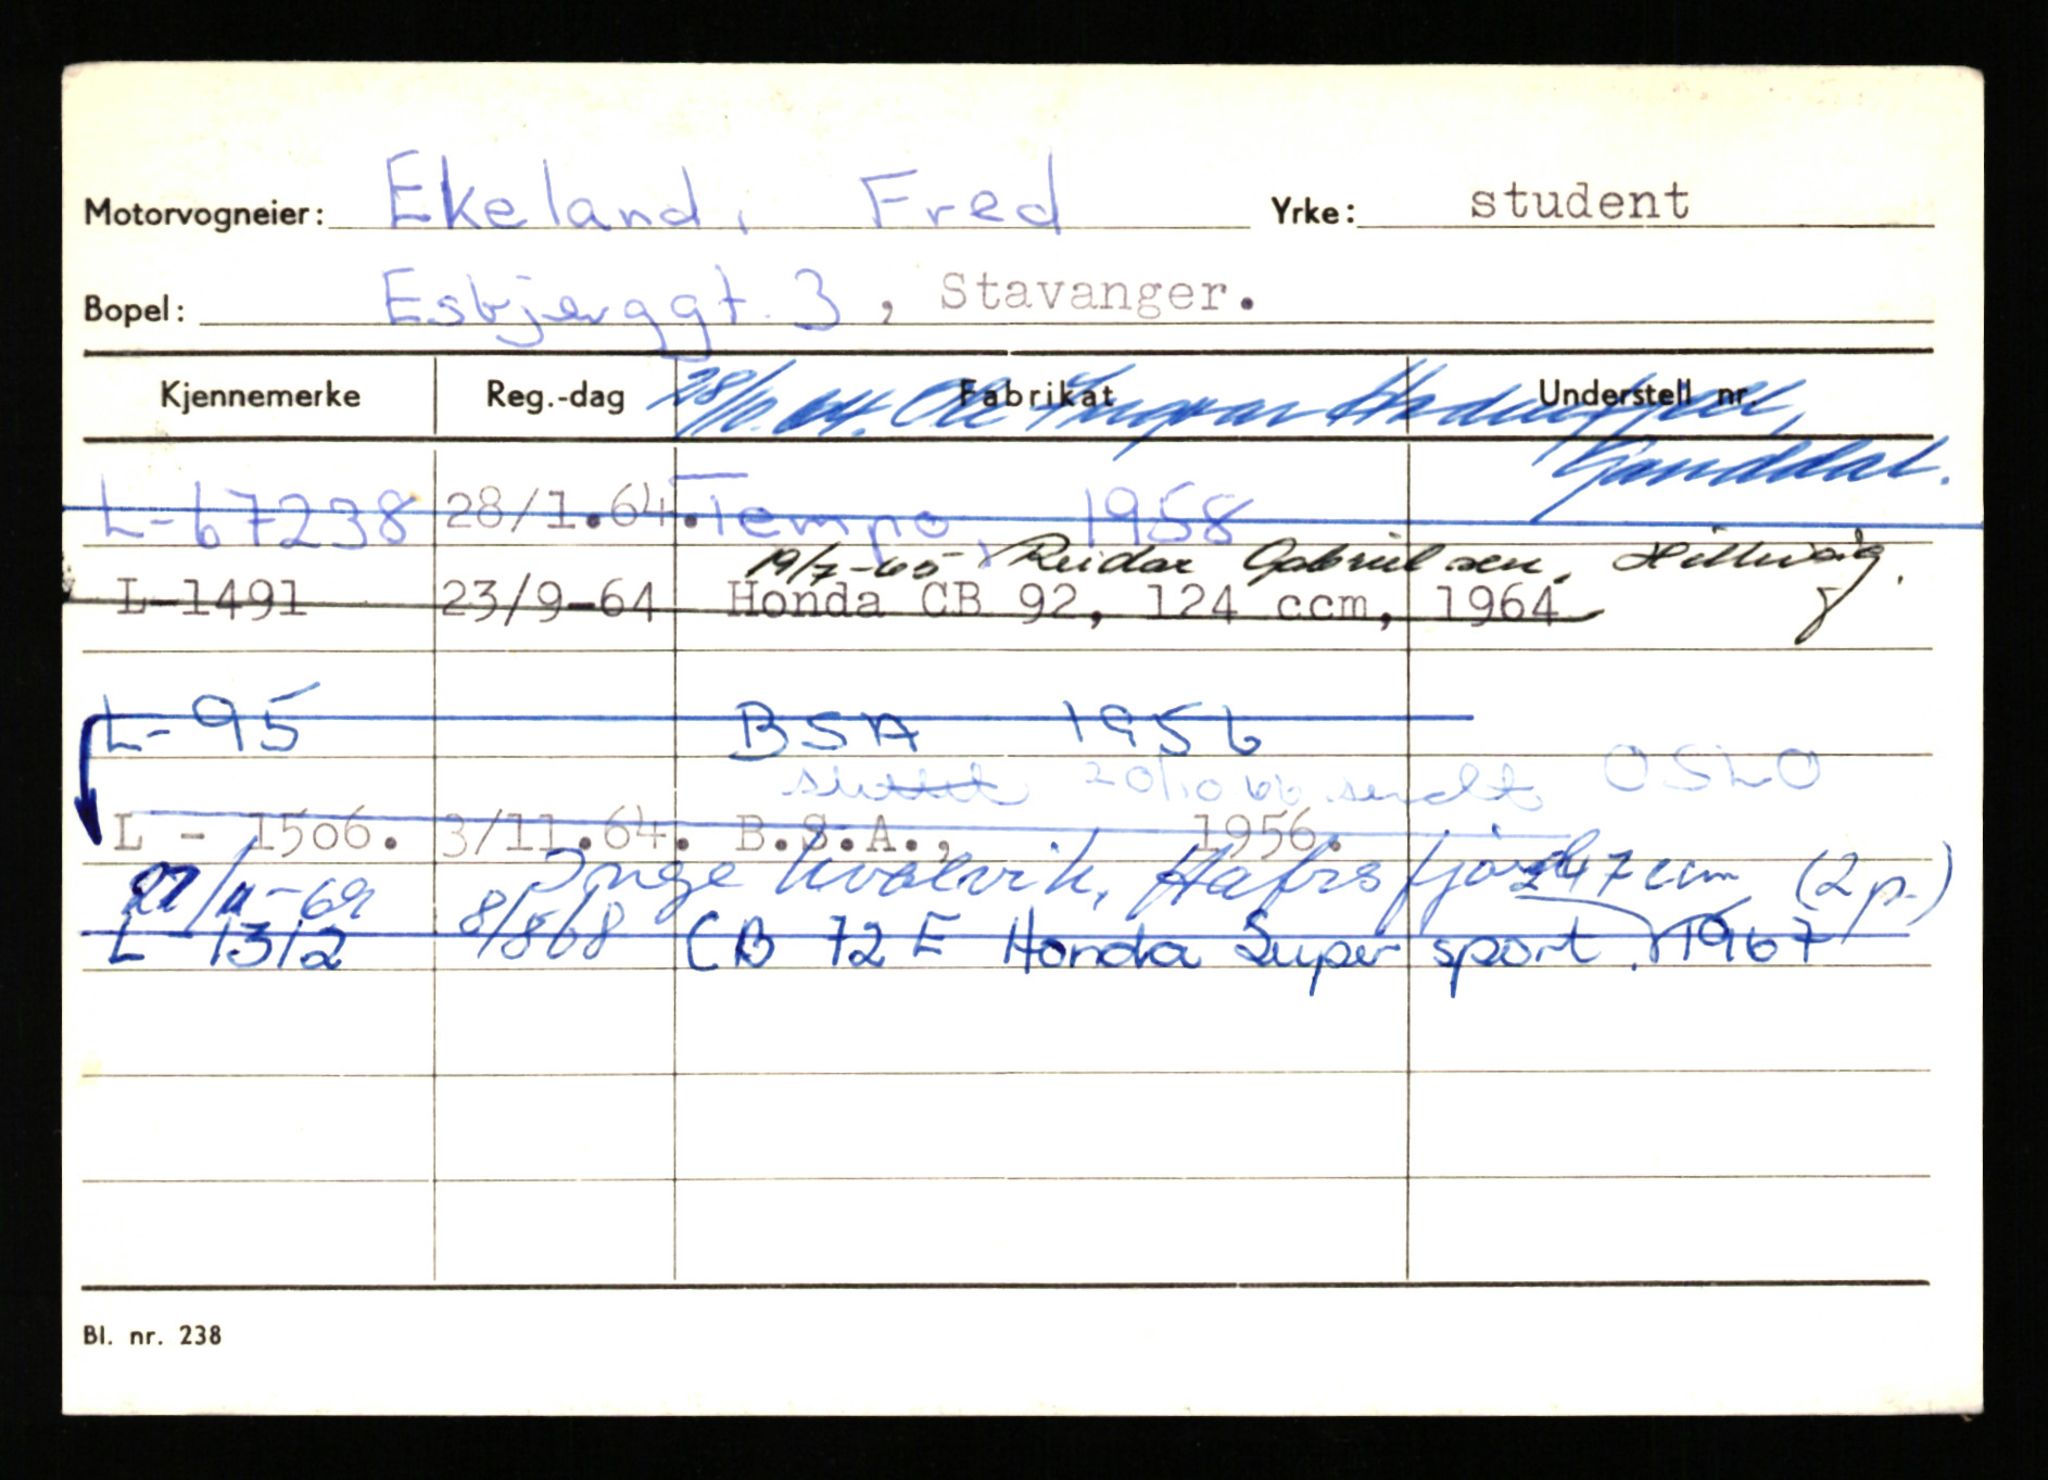 Motorvogneier: Ekeland, Fred Yrke: student
Bopel: Esbjerggt. 3, Stavanger.
Kjennemerke Reg.-dag Fabrikat Understell nr.
28/10.64. Ole Ingvar
Ganddal.
L-67238 28/1.64. Tempo, 1958
19/7-65 Reidar Gabrielsen, Hillevåg.
L-1491 23/9-64 Honda CB 92, 124 ccm, 1964
L-95 BSA 1956
slettet 20/10 66 sendt OSLO
L - 1506. 3/11.64. B.S.A., 1956.
27/11-69 Inge Kvalvik, Hafrsfjord 247 ccm (2 p.)
L 1312 8/5 68 CB 72 E Honda Super sport, 1967
Bl. nr. 238